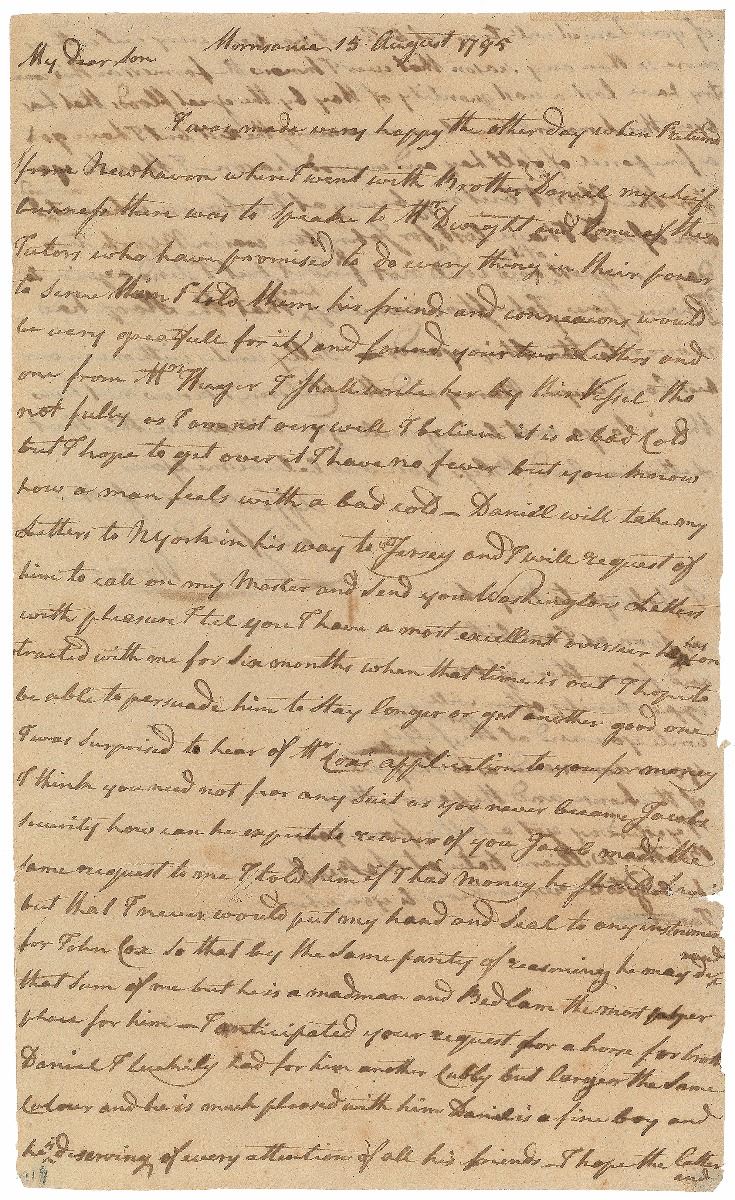 Morrisania 15 August 1795
My dear son
I was made very happy the other day when I returnd
from Newhaven where I went with Brother Daniel my chief
buisness there was to speake to Mr. Dwight and some of the
Tutors who have promised to do every thing in their power
to serve him I told them his friends and connexions would
be very greatfull for it and found your two Letters and
one from Mrs Huger I shall write her by this Vessel tho
not fully as I am not very well I believe it is a bad Cold
but I hope to get over it I have no fever but you know
how a man feels with a bad cold — Daniel will take my
Letters to NYork in his way to Jersey and I will request of
him to call on my and send you Washingtons Letters
with pleasure I tel you I have a most excellent overseer he has con
tracted with me for six months when that time is out I hope to
be able to persuade him to stay longer or get another good one
I was surprised to hear of Mr Coxs application to you for money
I think you need not fear any suit as you never became Jacobs
security how can he expect to recover of you Jacob made the
same request to me I told him if I had money he should
but that I never would put my hand and seal to any instrument
for John Cox so that by the same parity of reasoning he may
that sum of me but he is a madman and Bedlam the most proper
place for him — I anticipated your request for a horse for
Daniel I luckily had for him another Cubby but larger the same
Colour and he is much pleased with him Daniel is a fine boy and
he is deserving of every attention of all his friends — I hope the latter
and